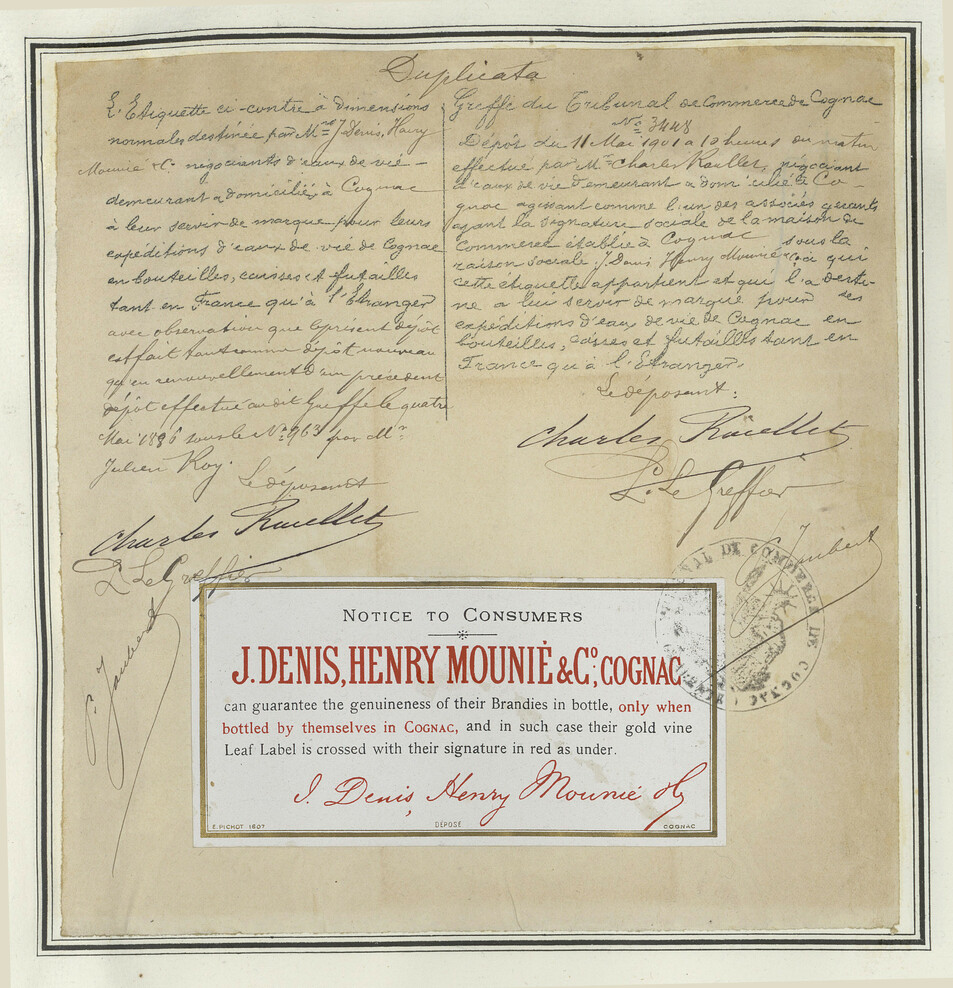 Duplicata
L'Etiquette ci-contre à dimensions
normales destinée, par Mrs J. Denis, Henry
Mounié & Co négociants d'eaux de vie –
demeurant & domiciliés à Cognac
à leur servir de marque pour leurs
expéditions d'eaux de vie de Cognac
en bouteilles, caisses et futailles
tant en France qu'à l'Etranger
avec observation que le présent dépôt
est fait tant comme dépôt nouveau
qu'en renouvellement d'un précédent
dépôt effectué au dit Greffe le quatre
Mai 1886 sous le No 963 par Mr
Julien Roy.
Le déposant
Charles Roullet
P. Le Greffier
Jaubert
Greffe du Tribunal de Commerce de Cognac
No 3448
Dépôt du 11 Mai 1901 à 10 heures du matin
effectué par Mr Charles Roullet, négociant
d'eaux de vie demeurant & domicilié à Co-
gnac agissant comme l'un des associés gérants
ayant la signature sociale de la maison de
Commerce établie à Cognac sous la
raison sociale J. Denis Henry Mounié & Co à qui
cette étiquette appartient et qui l'a desti-
né à lui servir de marque pour ses
expéditions d'eaux de vie de Cognac en
bouteilles, casses et futailles tant en
France qu'à l'Etranger.
Le déposant:
Charles Roullet
P. Le Greffier
Jaubert
TRIBUNAL DE COMMERCE DE COGNAC
NOTICE TO CONSUMERS
J. DENIS, HENRY MOUNIÉ & Co, COGNAC
can guarantee the genuineness of their Brandies in bottle, only when
bottled by themselves in COGNAC, and in such case their gold vine
Leaf Label is crossed with their signature in red as under.
J. Denis, Henry Mounié & Co
E. PICHOT 1607 DÉPOSÉ COGNAC